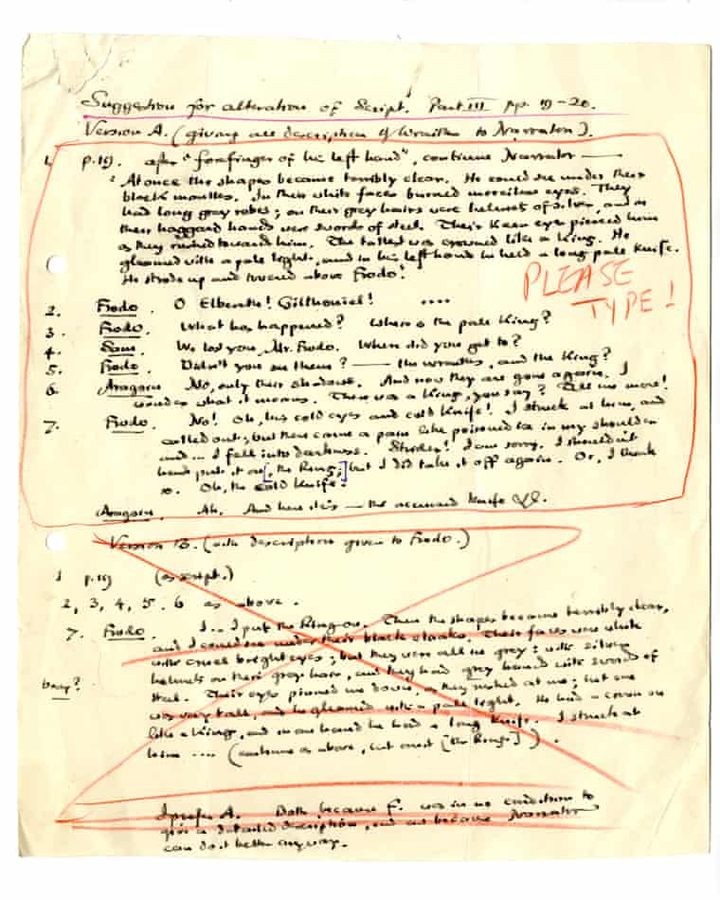 Suggestion for alteration of Script. Part III pp. 19-20.
Version A. (giving all description of Wraiths to Narrator).
1. p.19. after "forefinger of his left hand", continue Narrator ——
'At once the shapes became terribly clear. He could see under their
black mantles. In their white faces burned merciless eyes. They
had long grey robes; on their grey hairs were helmets of silver, and in
their haggard hands were swords of steel. Their keen eyes pierced him
as they rushed toward him. The tallest was crowned like a King. He
gleamed with a pale light, and in his left hand he held a long pale knife.
He strode up and towered above Frodo.'
PLEASE
TYPE!
2. Frodo. O Elbereth! Gilthoniel! ....
3. Frodo. What has happened? Where is the pale King?
4. Sam. We lost you, Mr. Frodo. Where did you get to?
5. Frodo. Didn't you see them? —— the wraiths, and the King?
6. Aragorn No, only their shadows. And now they are gone again. I
wonder what it means. There was a King, you say? Tell me more!
7. Frodo. No! Oh, his cold eyes and cold knife! I struck at him, and
called out; but there came a pain like poisoned ice in my shoulder
and ... I fell into darkness. Strider! I am sorry. I shouldn't
have put it on [, the Ring;] but I did take it off again. Or, I think
so. Oh, the cold knife!
Aragorn. Ah. And here it is — the accursed knife
Version B. (with description given to Frodo.)
1 p.19 (as script.)
2, 3, 4, 5. 6 as above.
7. Frodo. I... I put the Ring on. Then the shapes became terribly clear,
and I could see under their black cloaks. Their faces were white
with cruel bright eyes; but they were all in grey: with silver
helmets on their grey hair, and they had grey hands with swords of
steel. Their eyes pinned me down, as they rushed at me; but one
was very tall, and he gleamed with a pale light. He had a crown on
like a King, and in one hand he had a long knife. I struck at
him .... (continue as above, but omit [the Ring;]).
I prefer A. Both because F. was in no condition to
give a detailed description, and because Narrator
can do it better anyway.